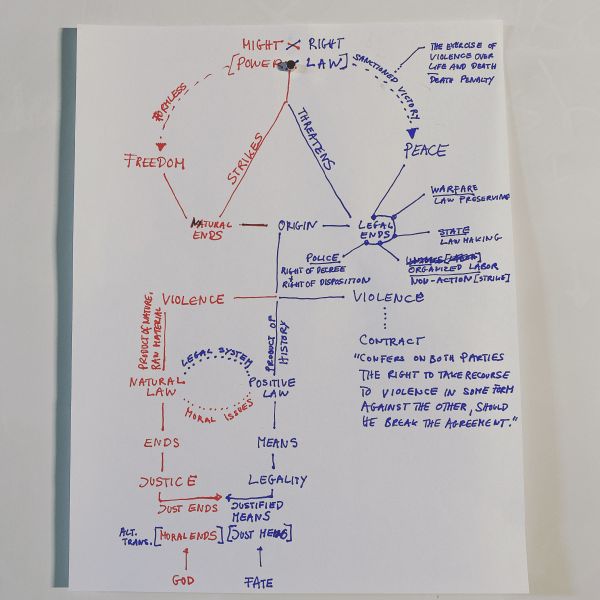 MIGHT × RIGHT
[POWER × LAW]
SANCTIONED VICTORY
THE EXERCISE OF
VIOLENCE OVER
LIFE AND DEATH
DEATH PENALTY
STRIKES
THREATENS
FREEDOM
PEACE
NATURAL
ENDS
ORIGIN
LEGAL
ENDS
WARFARE
LAW PRESERVING
STATE
LAW MAKING
ORGANIZED LABOR
NON-ACTION [STRIKE]
POLICE
RIGHT OF DECREE
RIGHT OF DISPOSITION
VIOLENCE
VIOLENCE
PRODUCT OF NATURE,
RAW MATERIAL
PRODUCT OF
HISTORY
CONTRACT
"CONFERS ON BOTH PARTIES
THE RIGHT TO TAKE RECOURSE
TO VIOLENCE IN SOME FORM
AGAINST THE OTHER, SHOULD
HE BREAK THE AGREEMENT."
LEGAL SYSTEM
NATURAL
LAW
POSITIVE
LAW
MORAL ISSUES
ENDS
MEANS
JUSTICE
LEGALITY
JUST ENDS
JUSTIFIED
MEANS
ALT.
TRANS.
[MORAL ENDS]
[JUST MEANS]
GOD
FATE